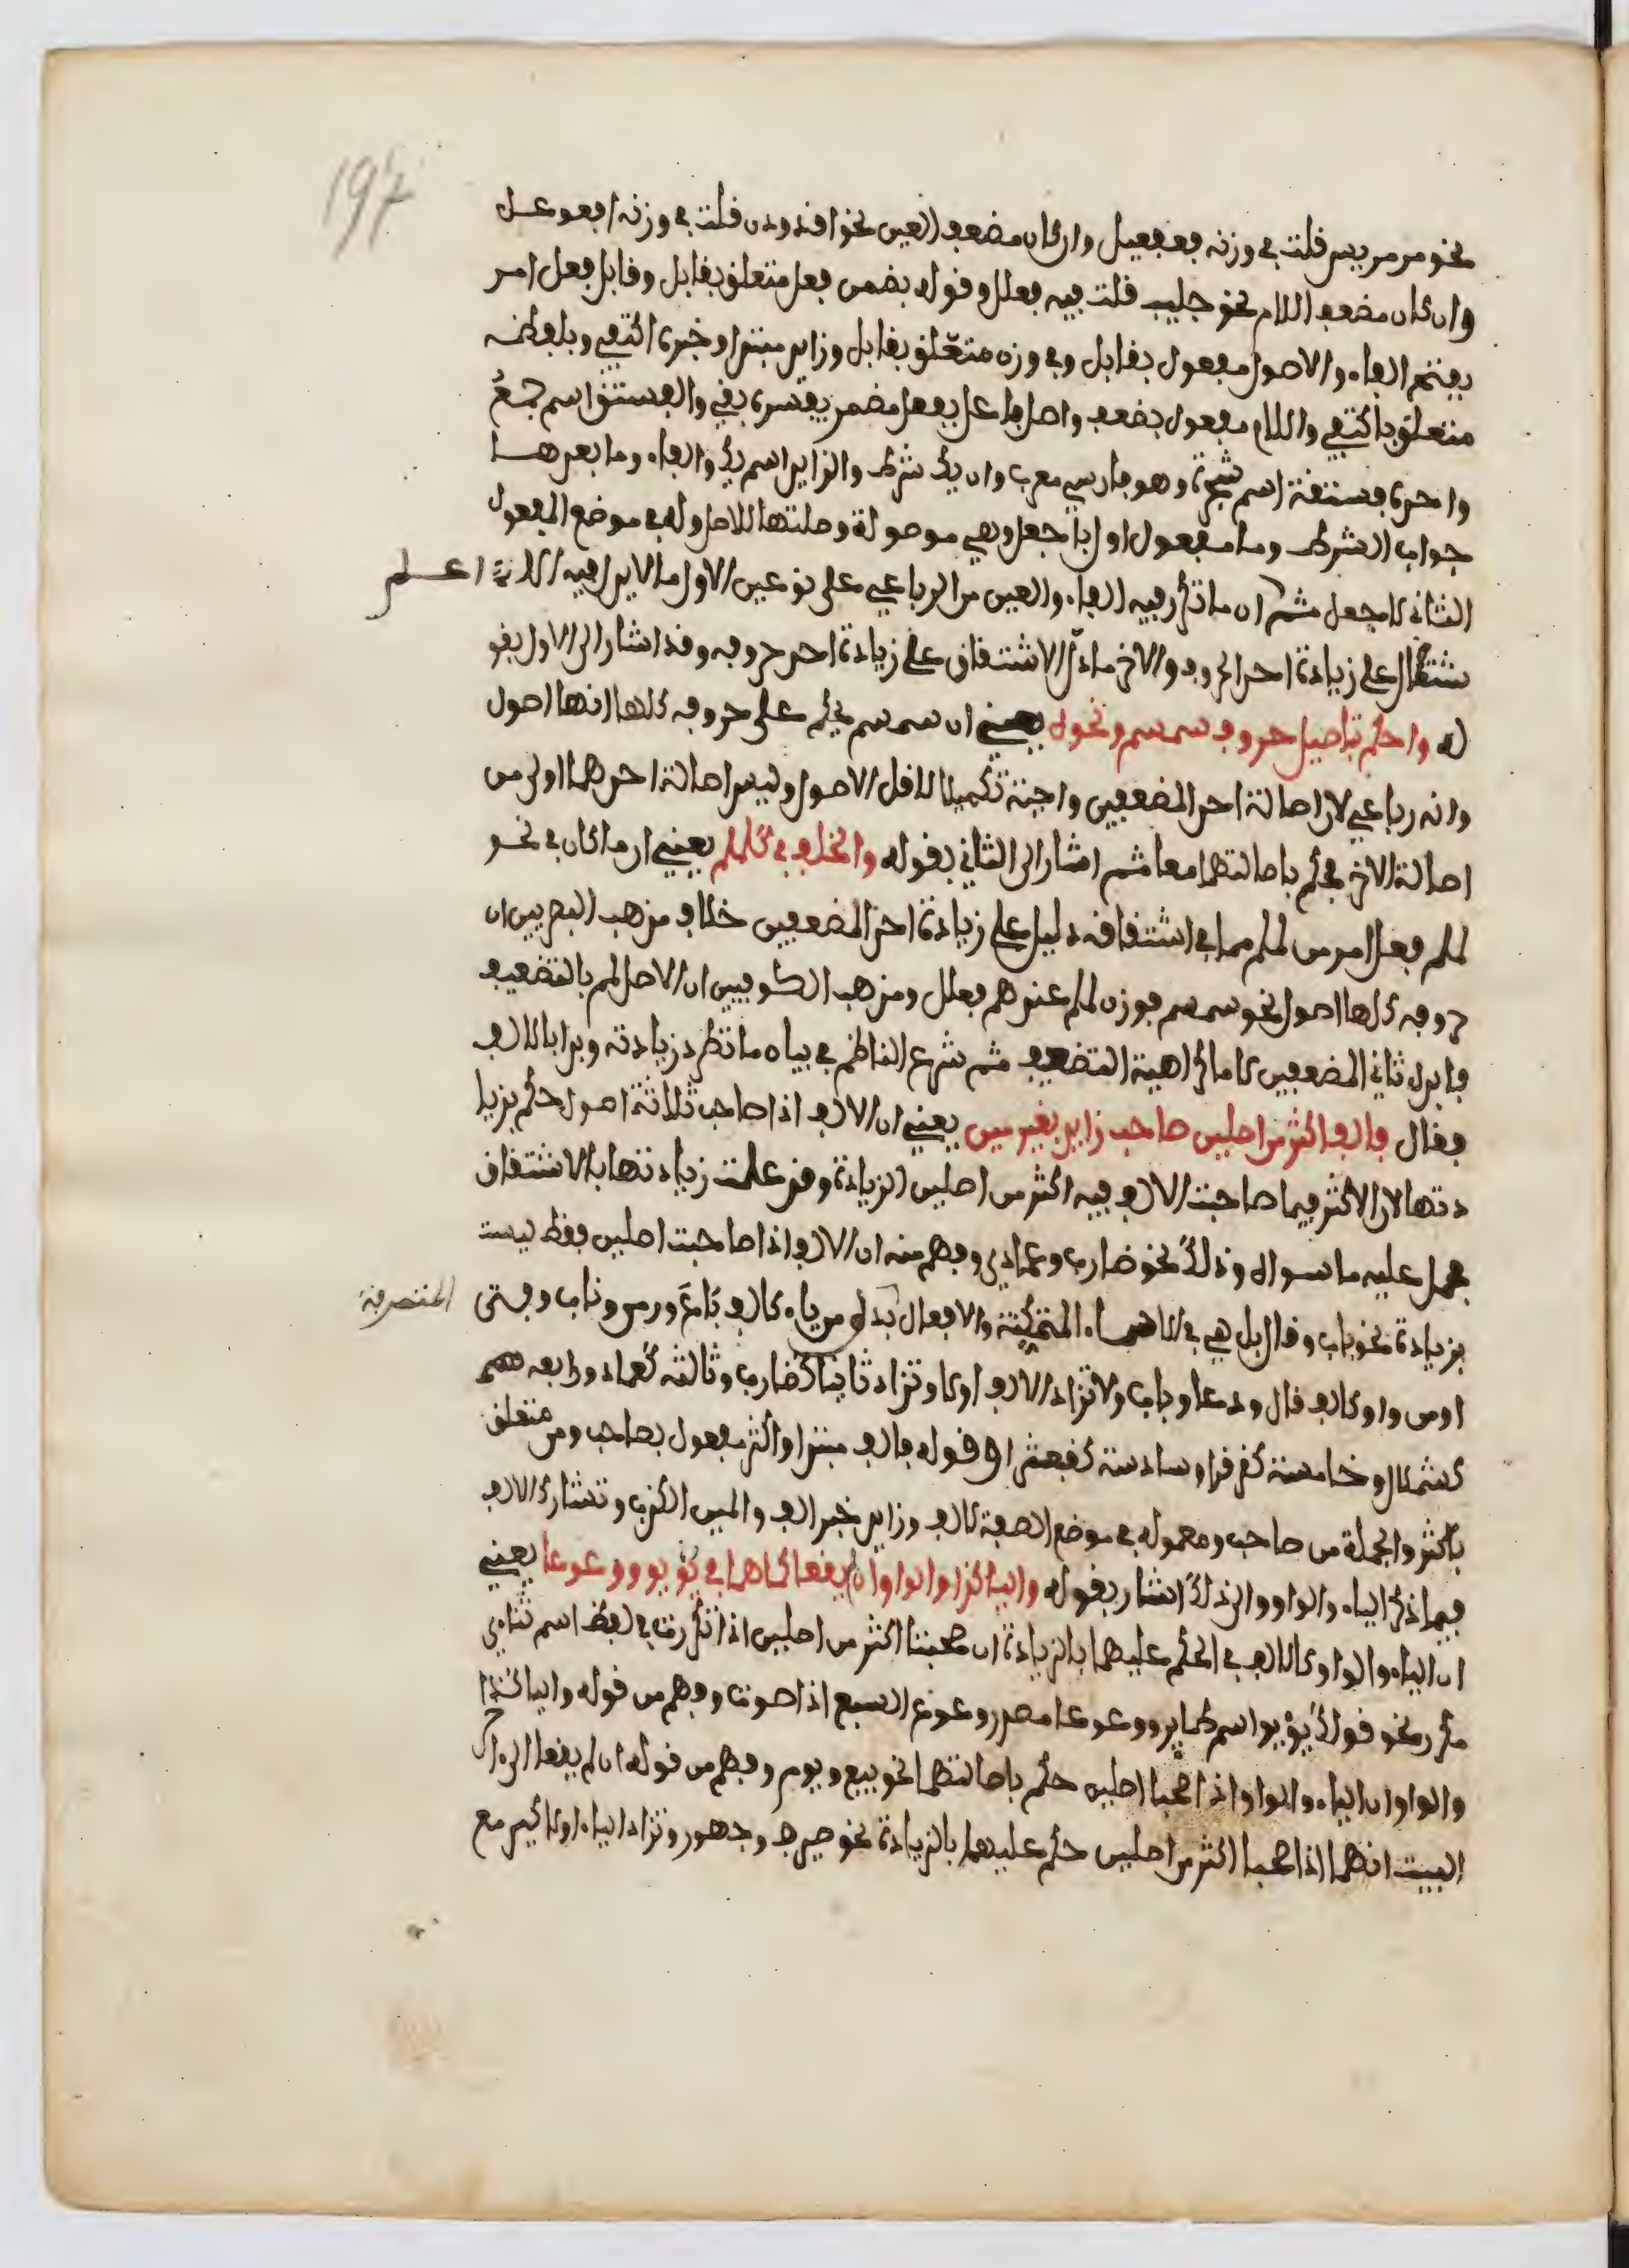 197
نحو مرمريس قلت في وزنه فعفعيل وان كان مضعف العين نحو اغدودن قلت في وزنه افعوعل
وان كان مضعف اللام نحو جلبب قلت فيه فعلل وقوله بضمن فعل متعلق بقابل وقابل فعل امر
بفتح الفاء والاصول مفعول بقابل وفي وزن متعلق بقابل وزايد مبتدا وخبره اكتفي وبلفظه
متعلق باكتفي واللام مفعول بضعف واصل فاعل بفعل مضمر يفسره بقي والفستق اسم جمع
واحده فستقة اسم شجرة وهو فارسي معرب وان يك شرط والزايد اسم يك والفاء وما بعدها
جواب الشرط وما مفعول اول باجعل وهي موصولة وصلتها للاصل وله في موضع المفعول
الثاني لاجعل ثم ان ما تكرر فيه الفاء والعين من الرباعي على نوعين الاول ما لا يدل فيه الا اعلم
شتقاق على زيادة احد الحروف والاخر ما دل الاشتقاق على زيادة احد حروفه وقد اشار الى الاول بقو
له واحكم بتاصيل حروف سمسم ونحوه يعني ان سمسم يحكم على حروفه كلها انها اصول
وانه رباعي لان اصالة احد المضعفين واجبة تكميلا لاقل الاصول وليس اصالة احدهما اولى من
اصالة الاخر فحكم باصالتهما معا ثم اشار الى الثاني بقوله والخلف في كلملم يعني ان ما كان في نحو
لملم فعل امر من لملم مما في اشتقاقه دليل على زيادة احد المضعفين خلاف مذهب البصريين ان
حروفه كلها اصول نحو سمسم فوزن لملم عندهم فعلل ومذهب الكوفيين ان الاصل لمم بالتضعيف
فابدل ثاني المضعفين لاما كراهية التضعيف ثم شرع الناظم في بيان ما تطرد زيادته وبدا بالالف
فقال فالف اكثر من اصلين صاحب زايد بغير مين يعني ان الالف اذا صاحب ثلاثة اصول حكم بزيا
دتها لان الاكثر فيما صاحبت الالف فيه اكثر من اصلين الزيادة وقد علمت زيادتها بالاشتقاق
فحمل عليه ما سواه وذلك نحو ضارب وعمادي وفهم منه ان الالف اذا صاحبت اصلين فقط ليست
بزيادة نحو باب وقال بل هي في الاسماء المتمكنة والافعال بدل من ياء كالف باع ورمى وناب وفتى المتصرفة
او من واو كالف قال ودعا وباب ولا تزاد الالف اولا وتزاد ثانيا كضارب وثالثة كعماد ورابعه
كشملال وخامسة كقرقرا وسادسة كقبعثرا وقوله فالف مبتدا واكثر مفعول بصاحب ومن متعلق
باكثر والجملة من صاحب ومعموله في موضع الصفة لالف وزايد خبر الف والمين الكذب وتشارك الالف
فيما ذكر الياء والواو والى ذلك اشار بقوله واليا كذا والواو ان لم يقعا كما هما في يؤيؤ ووعوعا يعني
ان الياء والواو كالالف في الحكم عليهما بالزيادة ان صحبتا اكثر من اصلين اذا تكررت في لفظ اسم ثناءي
مكرر نحو قولك يؤيؤ اسم طاير ووعوعا مصدر وعوع السبع اذا صوت وفهم من قوله واليا كذا
والواو ان الياء والواو اذا صحبا اصلين حكم باصالتهما نحو بيع ويوم وفهم من قوله ان لم يقعا الى اخر
البيت انهما اذا صحبا اكثر من اصلين حكم عليهما بالزيادة نحو صيرف وجهور وتزاد الياء اولا كيرمع